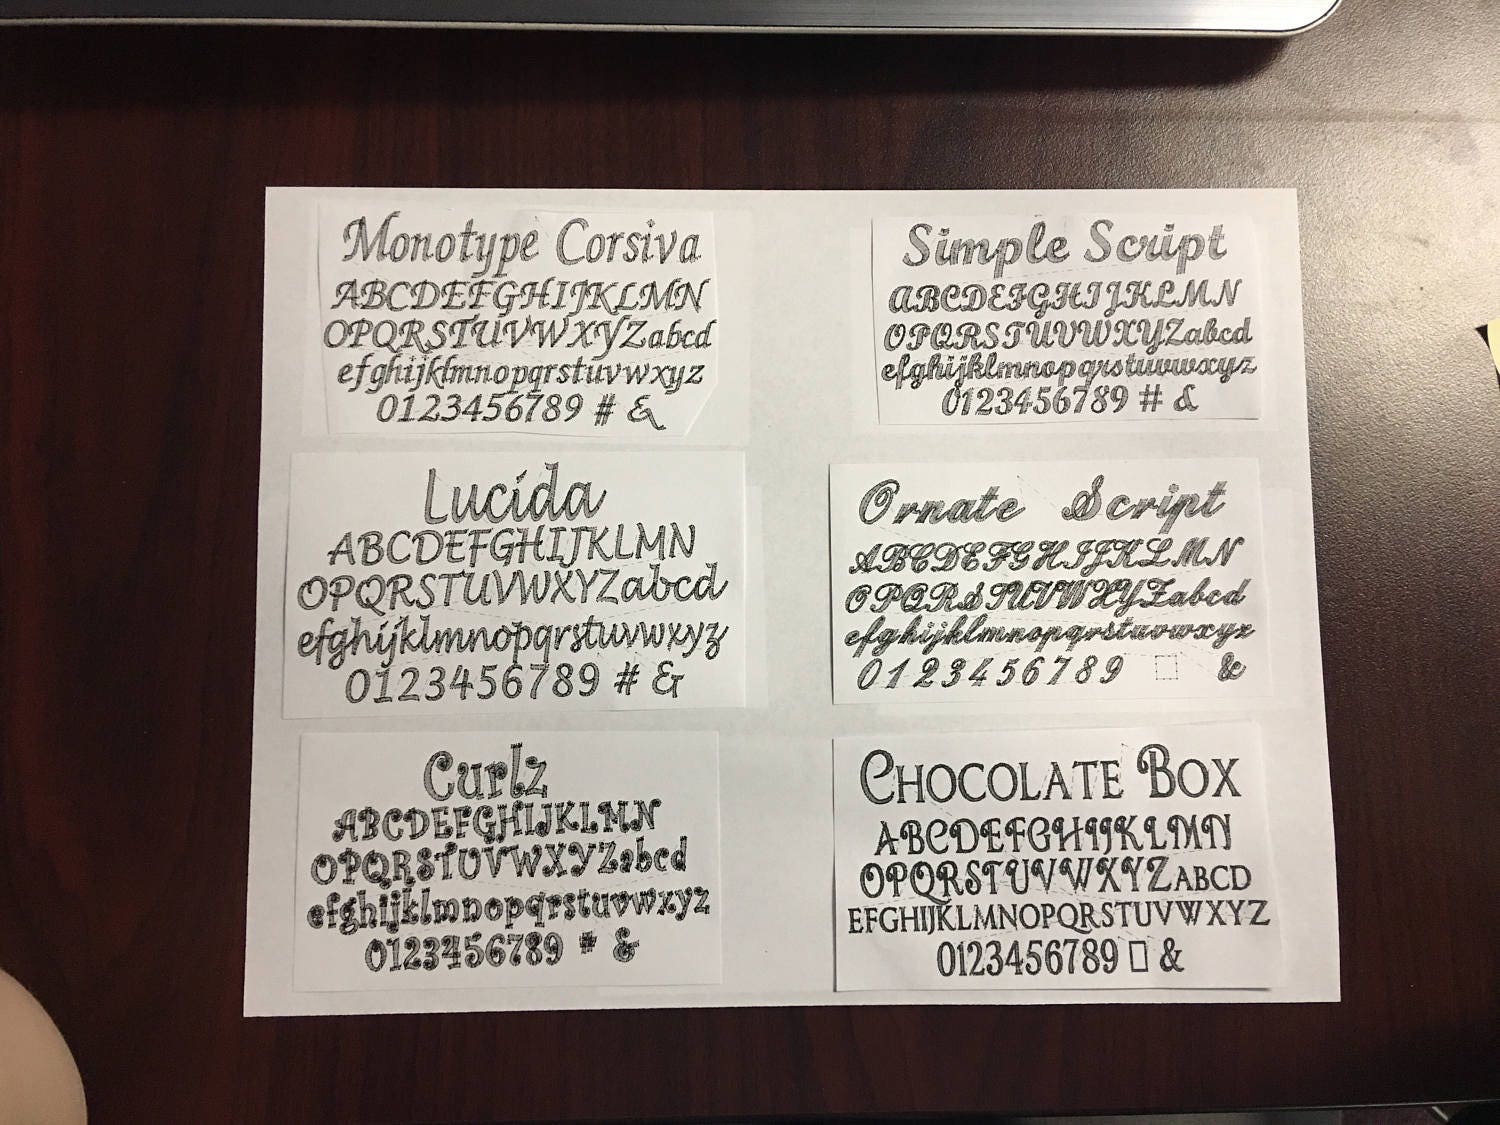 Monotype Corsiva
ABCDEFGHIJKLMN
OPQRSTUVWXYZabcd
efghijklmnopqrstuvwxyz
0123456789 # &
Simple Script
ABCDEFGHIJKLMN
OPQRSTUVWXYZabcd
efghijklmnopqrstuvwxyz
0123456789 # &
Lucida
ABCDEFGHIJKLMN
OPQRSTUVWXYZabcd
efghijklmnopqrstuvwxyz
0123456789 # &
Ornate Script
ABCDEFGHIJKLMN
OPQRSTUVWXYZabcd
efghijklmnopqrstuvwxyz
0123456789 □ &
Curlz
ABCDEFGHIJKLMN
OPQRSTUVWXYZabcd
efghijklmnopqrstuvwxyz
0123456789 # &
CHOCOLATE BOX
ABCDEFGHIJKLMN
OPQRSTUVWXYZABCD
EFGHIJKLMNOPQRSTUVWXYZ
0123456789 □ &